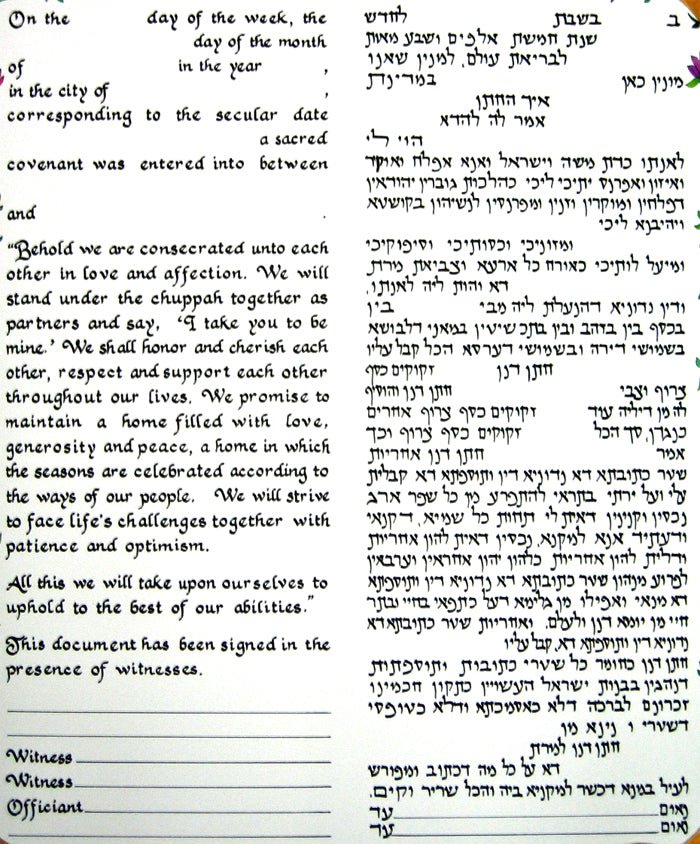 On the day of the week, the
day of the month
of in the year ,
in the city of ,
corresponding to the secular date
a sacred
covenant was entered into between
and .
“Behold we are consecrated unto each
other in love and affection. We will
stand under the chuppah together as
partners and say, ‘I take you to be
mine.’ We shall honor and cherish each
other, respect and support each other
throughout our lives. We promise to
maintain a home filled with love,
generosity and peace, a home in which
the seasons are celebrated according to
the ways of our people. We will strive
to face life's challenges together with
patience and optimism.
All this we will take upon ourselves to
uphold to the best of our abilities.”
This document has been signed in the
presence of witnesses.
Witness
Witness
Officiant
ב בשבת לחדש
שנת חמשת אלפים ושבע מאות
לבריאת עולם, למנין שאנו
מונין כאן במדינת
איך החתן
אמר לה להדא
הוי לי
לאנתו כדת משה וישראל ואנא אפלח ואוקר
ואיזון ואפרנס יתיכי ליכי כהלכות גוברין יהודאין
דפלחין ומוקרין וזנין ומפרנסין לנשיהון בקושטא
ויהיבנא ליכי
ומזוניכי וכסותיכי וסיפוקיכי
ומיעל לותיכי כאורח כל ארעא וצביאת מרת
דא והות ליה לאנתו,
ודין נדוניא דהנעלת ליה מבי בין
בכסף בין בזהב ובין בתכשיטין במאני דלבושא
בשמושי דירה ובשמושי דערסא הכל קבל עליו
חתן דנן זקוקים כסף
צרוף וצבי חתן דנן והוסיף
לה מן דיליה עוד זקוקים כסף צרוף אחרים
כנגדן, סך הכל זקוקים כסף צרוף וכך
אמר חתן דנן אחריות
שטר כתובתא דא נדוניא דין ותוספתא דא קבלית
עלי ועל ירתי בתראי להתפרע מן כל שפר ארג
נכסין וקנינין דאית לי תחות כל שמיא, דקנאי
ודעתיד אנא למקנא, נכסין דאית להון אחריות
ודלית להון אחריות כלהון יהון אחראין וערבאין
לפרוע מנהון שטר כתובתא דא נדוניא דין ותוספתא
דא מנאי ואפילו מן גלימא דעל כתפאי בחיי ובתר
חיי מן יומא דנן ולעלם, ואחריות שטר כתובתא דא
נדוניא דין ותוספתא דא, קבל עליו
חתן דנן כחומר כל שטרי כתובות ותוספתות
דנהגין בבנות ישראל העשויין כתקון חכמינו
זכרונם לברכה דלא כאסמכתא ודלא כטופסי
דשטרי ו נינא מן
חתן דנן למרת
דא על כל מה דכתוב ומפורש
לעיל במנא דכשר למקניא ביה והכל שריר וקים.
נאום עד
נאום עד